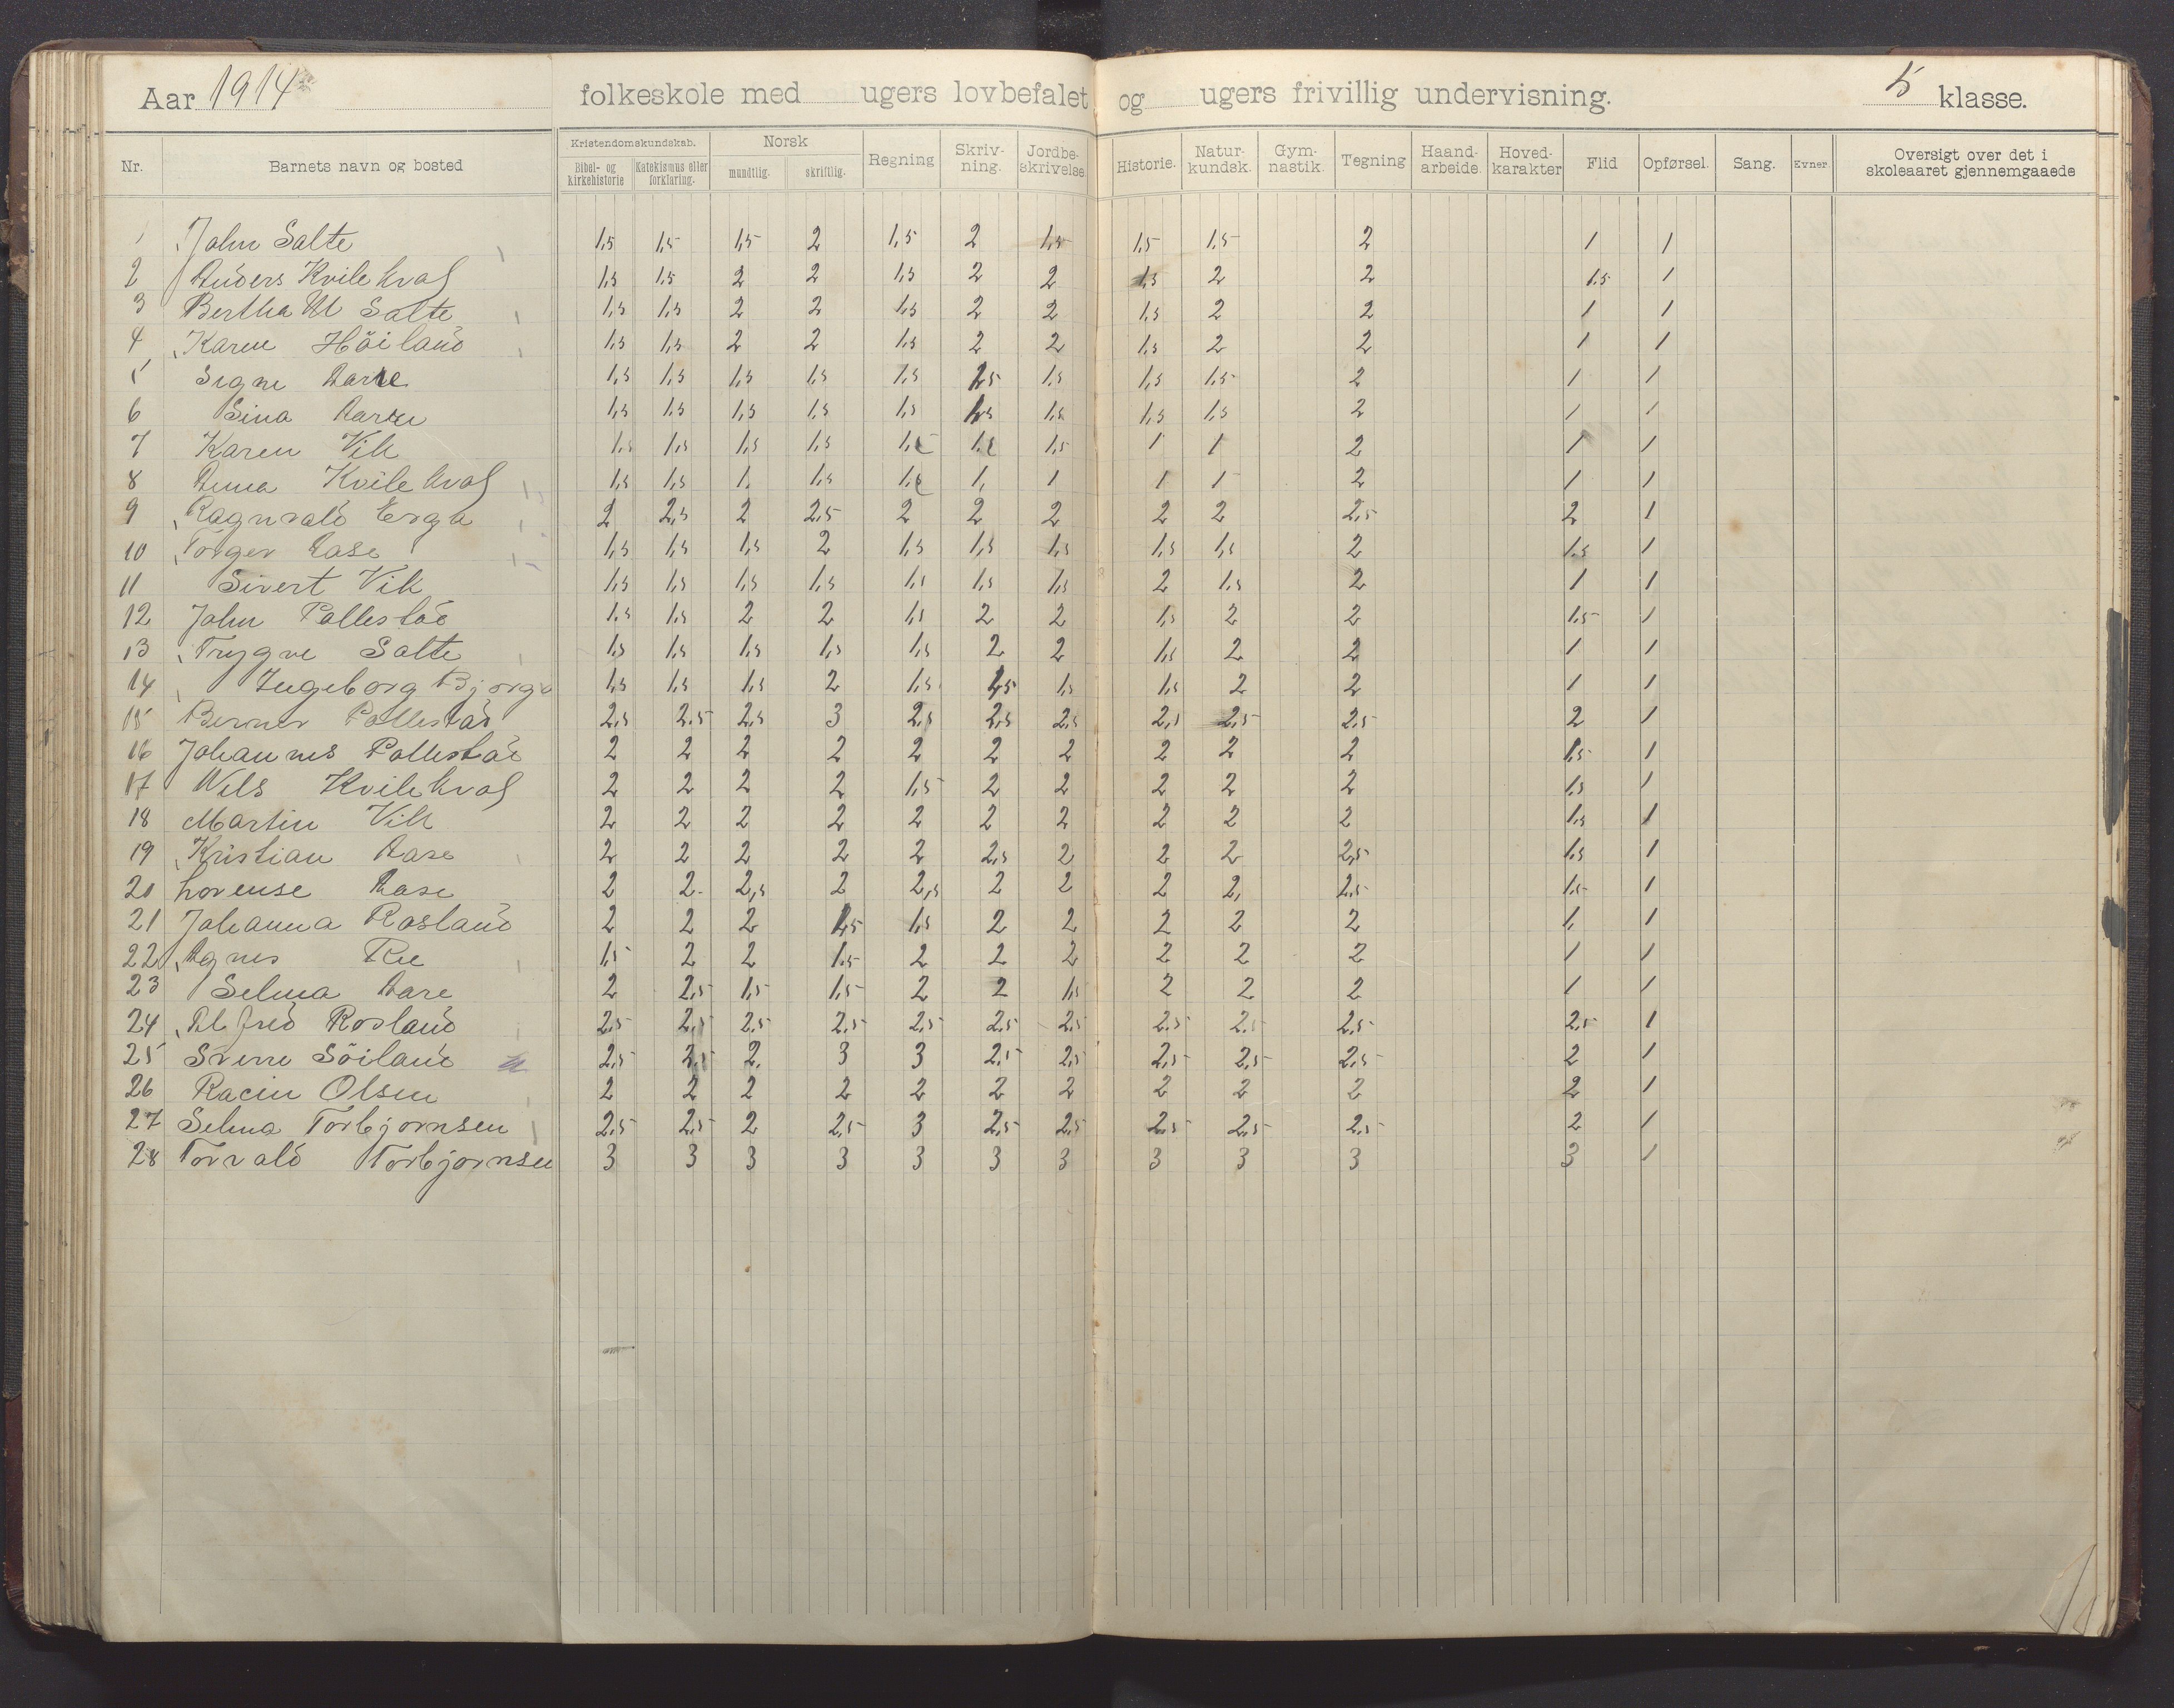 Aar 1914 folkeskole med ugers lovbefalet og ugers frivillig undervisning. 5 klasse.
Nr. Barnets navn og bosted Kristendomskundskab. Bibel- og kirkehistorie Katekismus eller forklaring. Norsk mundtlig. skriftlig. Regning Skriv-ning. Jordbe-skrivelse Historie. Natur-kundsk. Gym-nastik. Tegning Haand-arbeide. Hoved-karakter Flid Opførsel. Sang. Evner Oversigt over det i skoleaaret gjennemgaaede
1 John Salte 1,5 1,5 1,5 2 1,5 2 1,5 1,5 1,5 2 1 1
2 Anders Kvilehval 1,5 1,5 2 2 1,5 2 2 1,5 2 2 1.5 1
3 Bertha M Salte 1,5 1,5 2 2 1,5 2 2 1,5 2 2 1 1
4 Karen Höiland 1,5 1,5 2 2 1,5 2 2 1,5 2 2 1 1
5 Signe 1,5 1,5 1,5 1,5 1,5 1,5 1,5 1,5 2 1 1
6 Sina 1,5 1,5 1,5 1,5 1,5 1,5 1,5 1,5 1,5 2 1 1
7 Karen Vik 1,5 1,5 1,5 1,5 1,5 1 1 2 1 1
8 Anna Kvilehval 1,5 1,5 1. 1,5 1, 1 1 1 2 1 1
9 Ragnvald Erga 2 2,5 2 2,5 2 2 2 2 2 2,5 2 1
10 Torger Aase 1,5 1,5 1,5 2 1,5 1,5 1,5 1,5 1,5 2 1.5 1
11 Sivert Vik 1,5 1,5 1,5 1,5 1,5 1,5 1,5 2 1,5 2 1 1
12 John Pollestad 1.5 1,5 2 2 1,5 2 2 1,5 2 2 1.5 1
13 Trygve Salte 1,5 1,5 1,5 1,5 1,5 2 2 1,5 2 2 1 1
14 Ingeborg Bjorga 1,5 1,5 1,5 2 1,5 1,5 1,5 2 2 1 1
15 Berner Pollestad 2,5 2.5 2,5 3 2,5 2,5 2,5 2,5 2,5 2,5 2 1
16 Johannes Pollestad 2 2 2 2 2 2 2 2 2 2 1,5 1
17 Nils Kvilehval 2 2 2 2 1,5 2 2 2 2 2 1,5 1
18 Martin Vik 2 2 2 2 2 2 2 2 2 2 1,5 1
19 Kristian Aase 2 2 2 2 2 2,5 2 2 2 2,5 1,5 1
20 Lorense Aase 2 2 2,5 2 2,5 2 2 2 2, 2.5 1,5 1
21 Johanna Rosland 2 2 2 1,5 1,5 2 2 2 2 2 1, 1
22 Agnes Ree 1,5 2 2 1.5 2 2 2 2 2 2 1 1
23 Selma Aare 2 2,5 1,5 1,5 2 2 1,5 2 2 2 1 1
24 Alfred Rosland 2,5 2,5 2,5 2,5 2,5 2,5 2,5 2,5 2.5 2,5 2,5 1
25 Sverre Söiland 2,5 2. 3 3 2,5 2,5 2,5 2,5 2,5 2 1
26 Olsen 2 2 2 2 2 2 2 2 2 2 2 1
27 Selma Torbjornsen 2,5 2,5 2 2,5 3 2,5 2,5 2,5 2,5 2,5 2 1
28 Torvald Torbjornsen 3 3 3 3 3 3 3 3 3 3 3 1